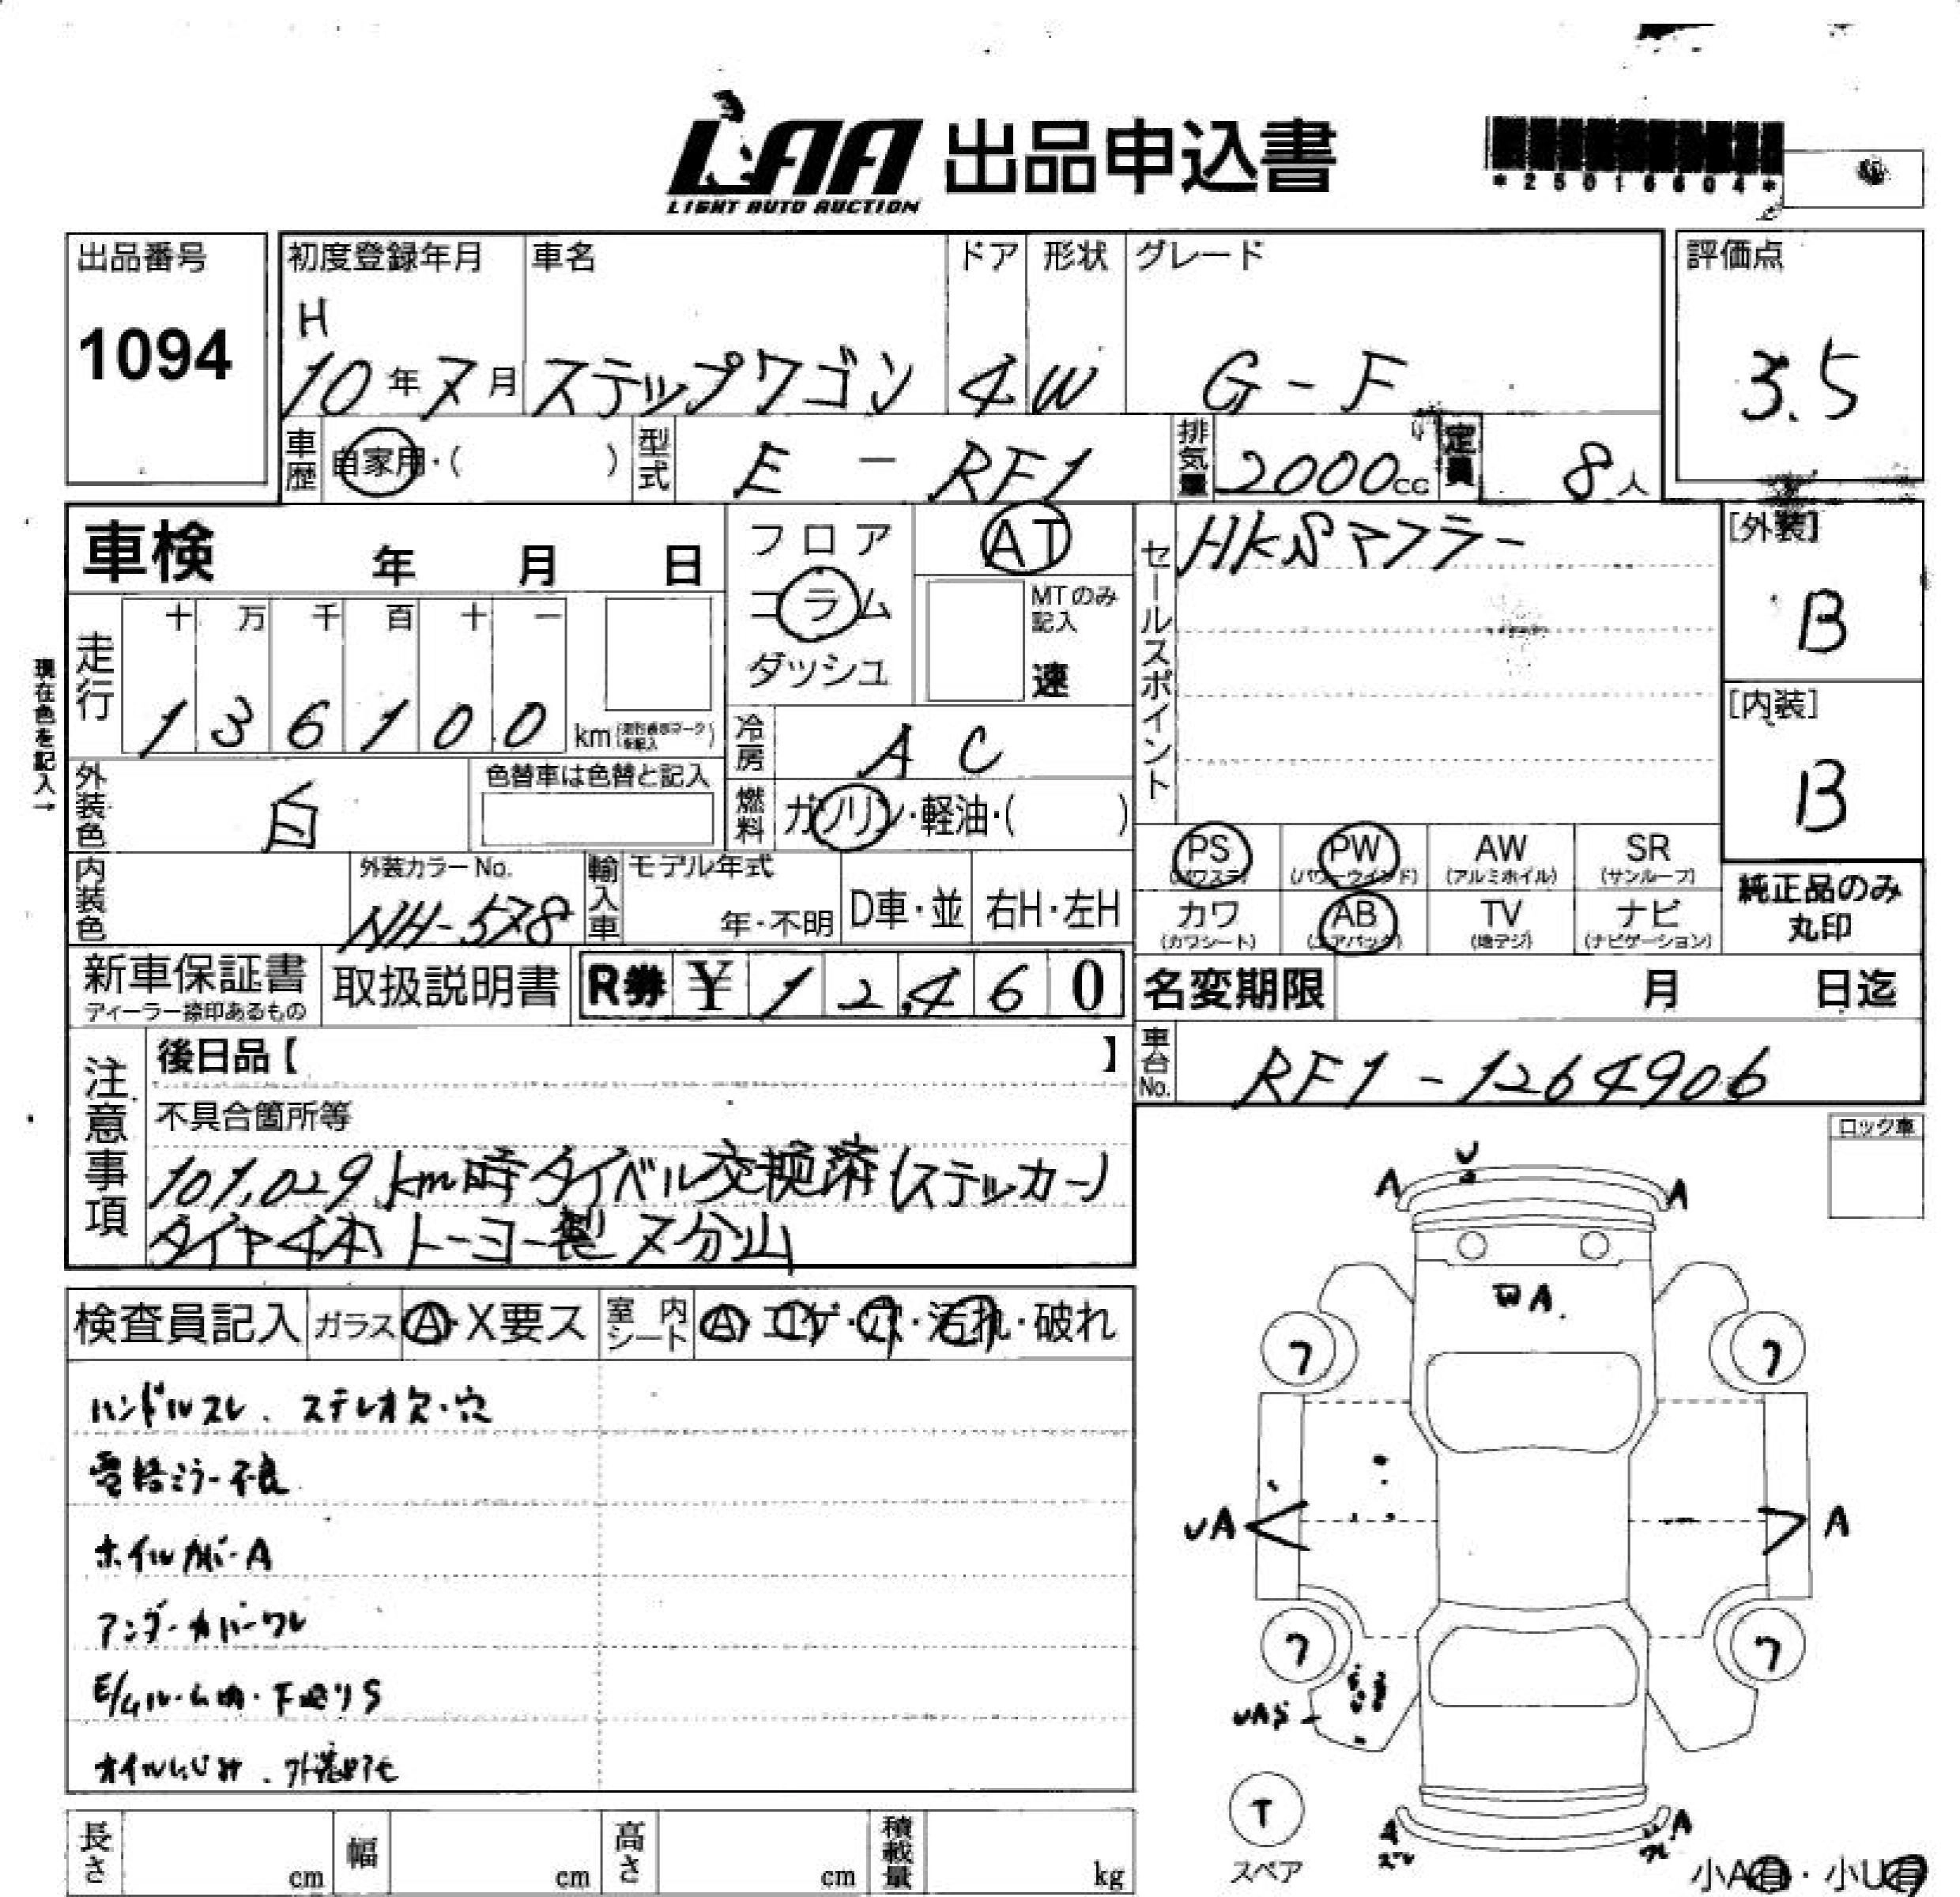 LAA 出品申込書
LIGHT AUTO AUCTION
*25016604*
出品番号
1094
初度登録年月 車名 ドア 形状 グレード
H
10年7月 ステップワゴン 4 W G-F
評価点
3.5
車歴 自家用・( ) 型式 E-RF1 排気量 2000cc 定員 8人
車検 年 月 日
フロア
コラム
ダッシュ
AT
MTのみ記入
速
セールスポイント
HKSマフラー
[外装]
B
[内装]
B
現在色を記入→
走行
十 万 千 百 十 一
1 3 6 1 0 0 km
冷房 AC
外装色 白 色替車は色替と記入
燃料 ガソリン・軽油・( )
PS (パワステ) PW (パワーウインド) AW (アルミホイル) SR (サンルーフ)
カワ (カワシート) AB (エアバック) TV (地デジ) ナビ (ナビゲーション)
純正品のみ
丸印
内装色 外装カラーNo. NH-578
輸入車 モデル年式 年・不明 D車・並 右H・左H
新車保証書
ディーラー捺印あるもの
取扱説明書
R券 ¥12,460
名変期限 月 日迄
車台No. RF1-1264906
注意事項
後日品【 】
不具合箇所等
101,029km時タイベル交換済(ステッカー)
タイヤ4本トーヨー製7分山
検査員記入 ガラス A・X要ス 室内シート A・コゲ・穴・汚れ・破れ
ハンドルスレ、ステレオ欠・穴
電格ミラー不良
ホイルカバーA
アンダーカバーワレ
E/gルーム内・下廻りS
オイルにじみ、
ロック車
U
A A
A.
7 7
UA A
7 7
UAS
T
スペア
A A
小A有・小U有
長さ cm 幅 cm 高さ cm 積載量 kg